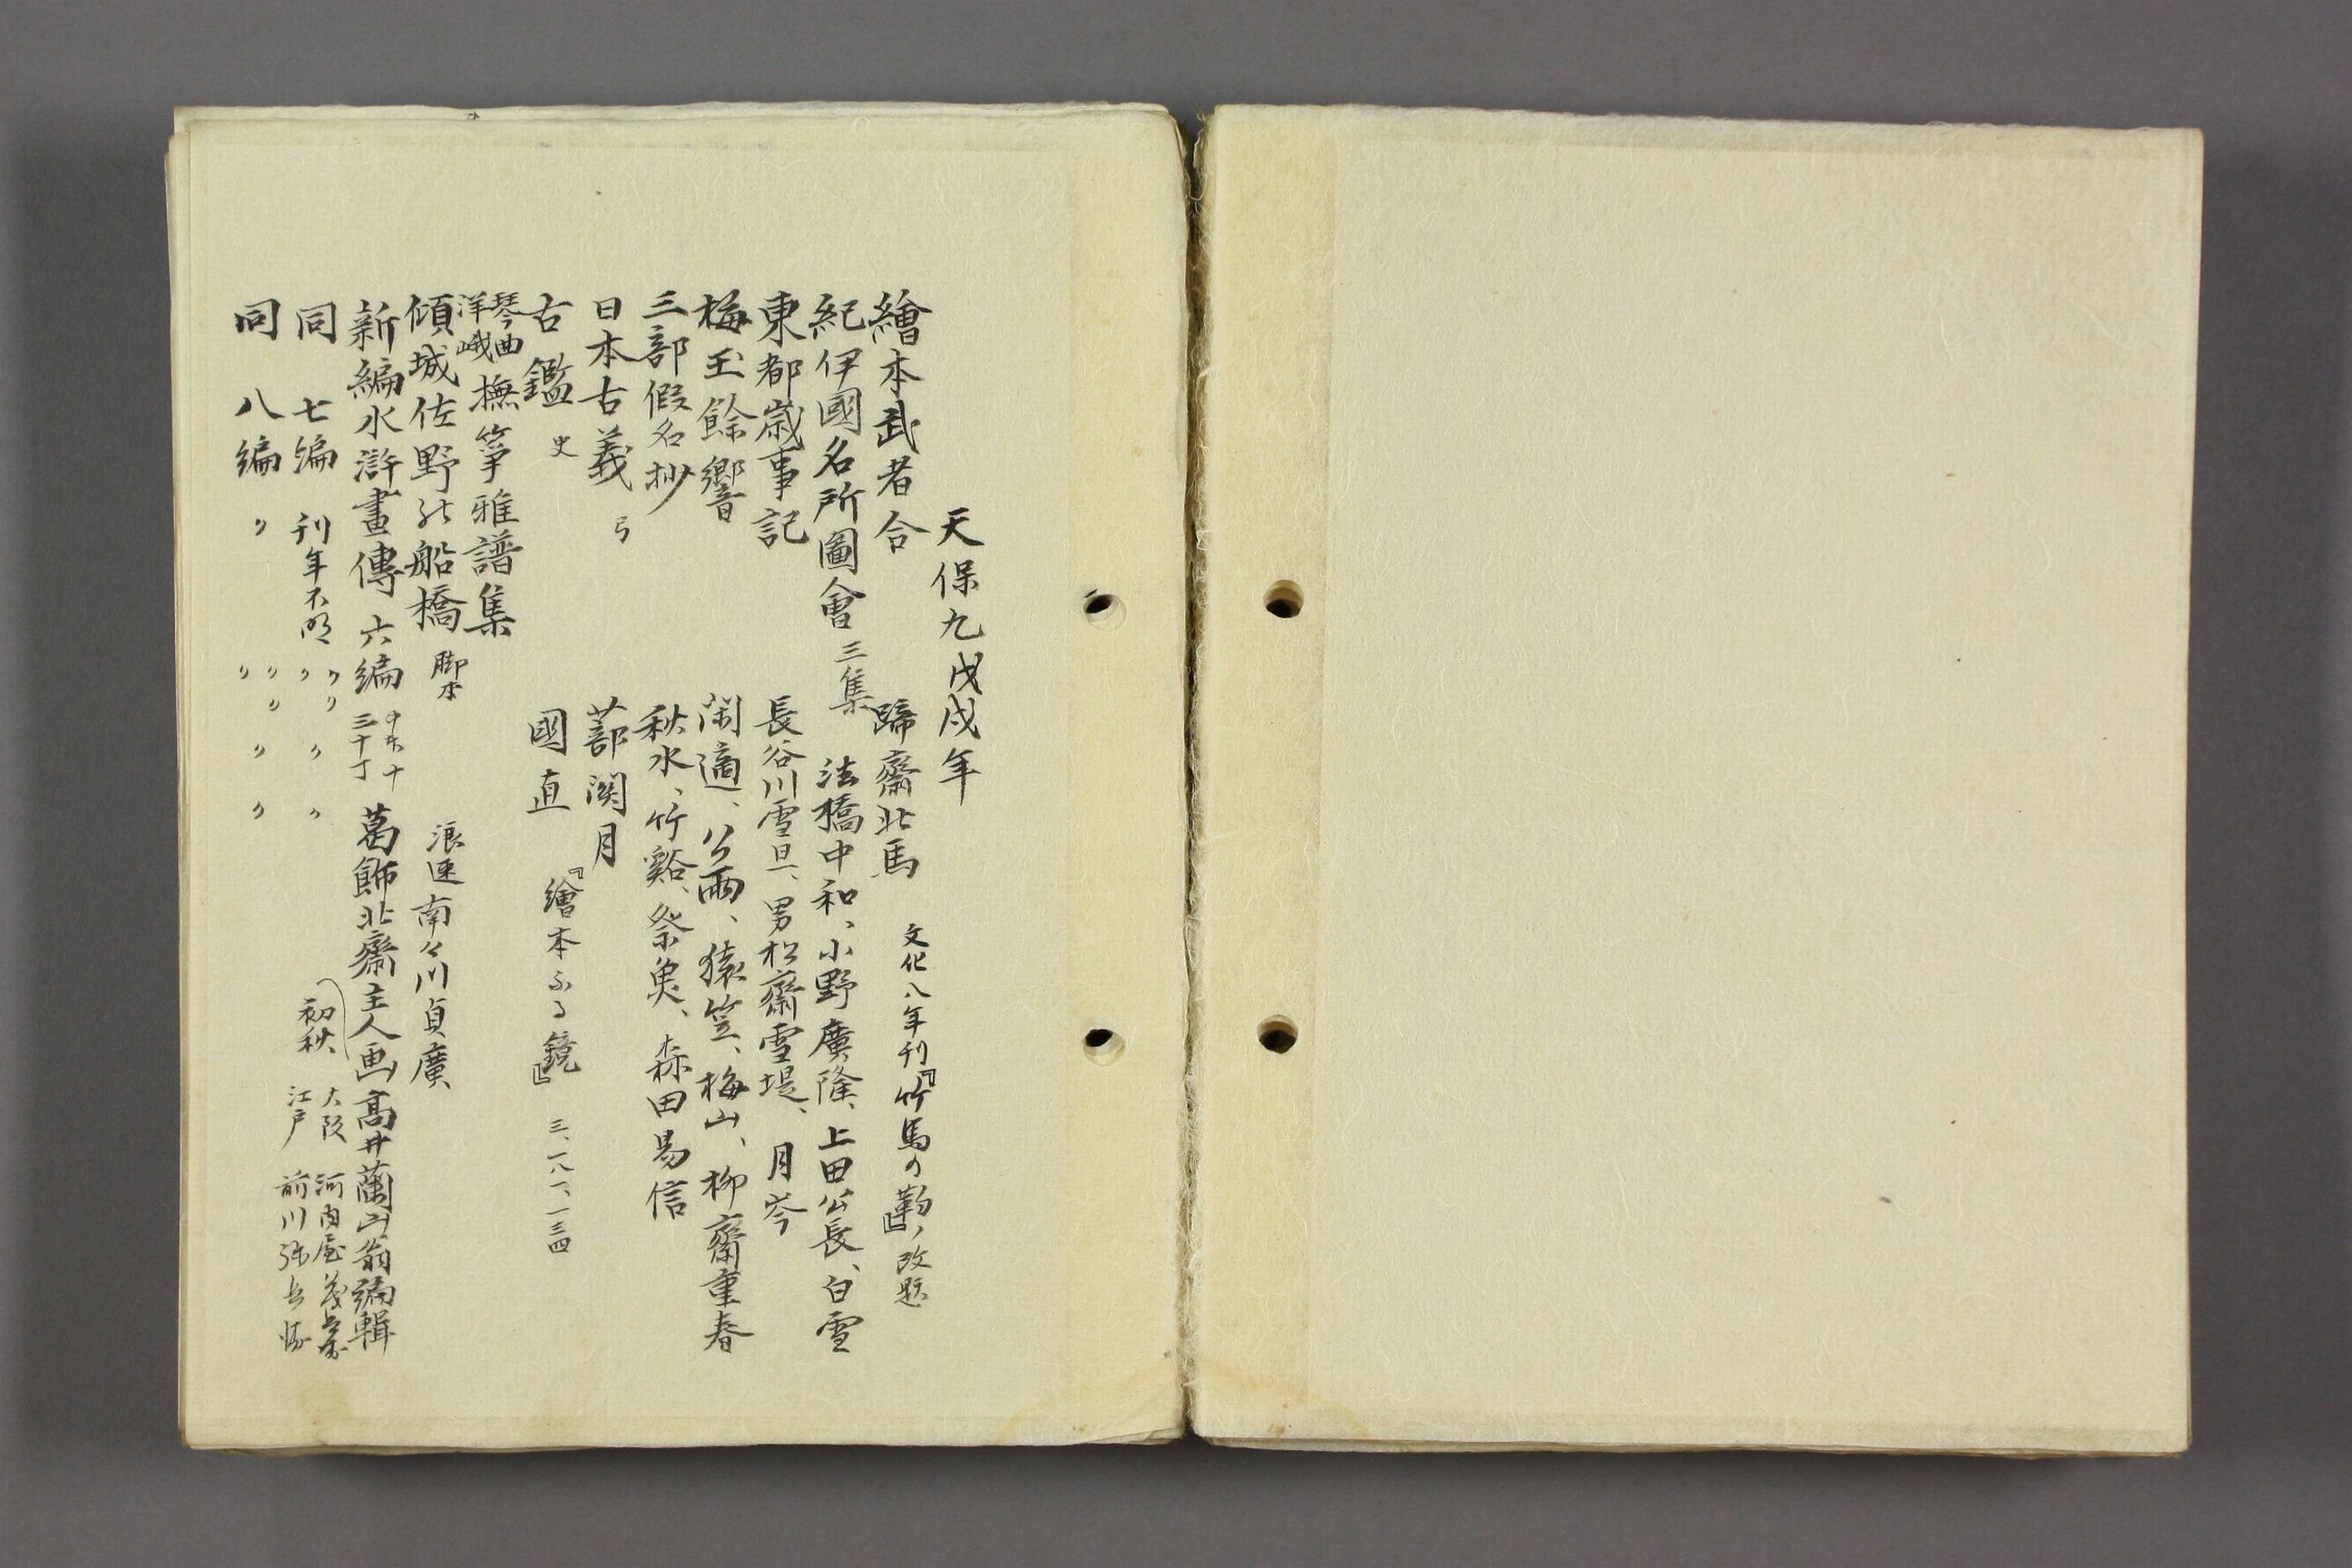 天保九戊戌年
繪本武者合 蹄齋北馬 文化八年刊『竹馬の靮』ノ改題
紀伊國名所圖會 三集 法橋中和、小野廣隆、上田公長、白雪
東都歳事記 長谷川雪旦、男松齋雪堤、月岑
梅玉餘響 閑適、公雨、猿笠、梅山、柳齋重春
三部假名抄 秋水、竹谿、祭魚、森田易信
日本古義 弓 蔀関月
古鑑 史 國直 『繪本ふる鏡』 三、一八一、一三四
琴曲洋峨 撫箏雅譜集
傾城佐野の船橋 脚本 浪速南々川貞廣
新編水滸畫傳 六編 中本十 三十丁 葛飾北齋主人画 高井蘭山翁編輯
同 七編 刊年不明 〃 〃 〃 〃 〃 初秋 大阪 河内屋茂兵衛 江戸 前川弥兵衛
同 八編 〃 〃 〃 〃 〃 〃